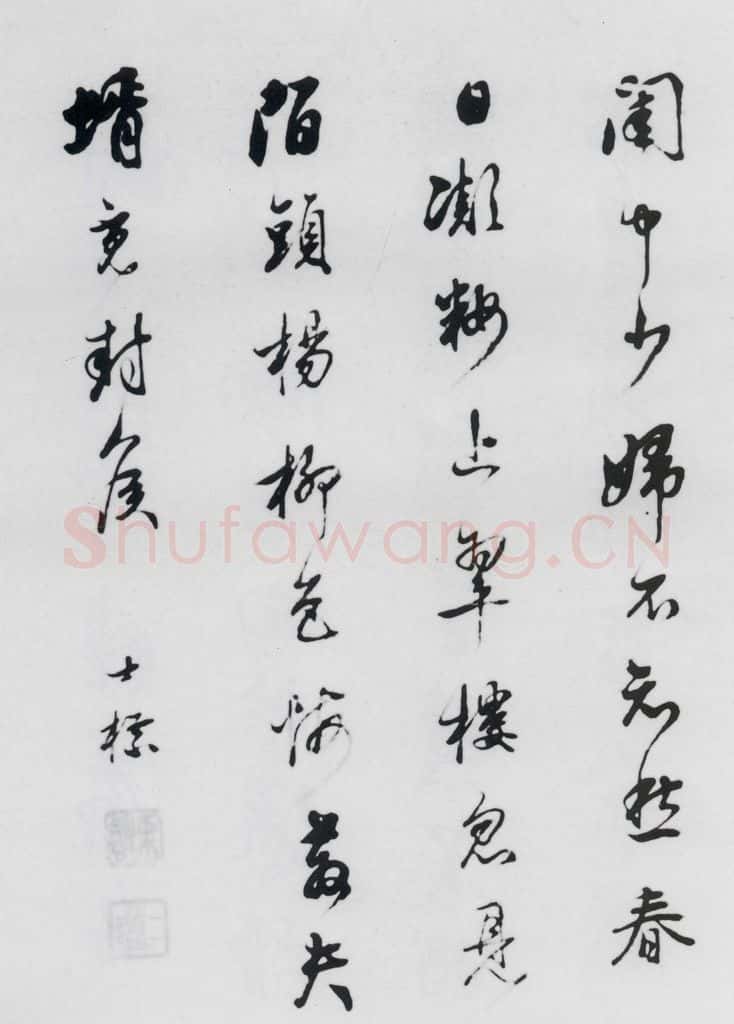 閨中少婦不知愁春
日凝妝上翠樓忽見
陌頭楊柳色悔教夫
壻覓封侯
士標
Shufawang.CN